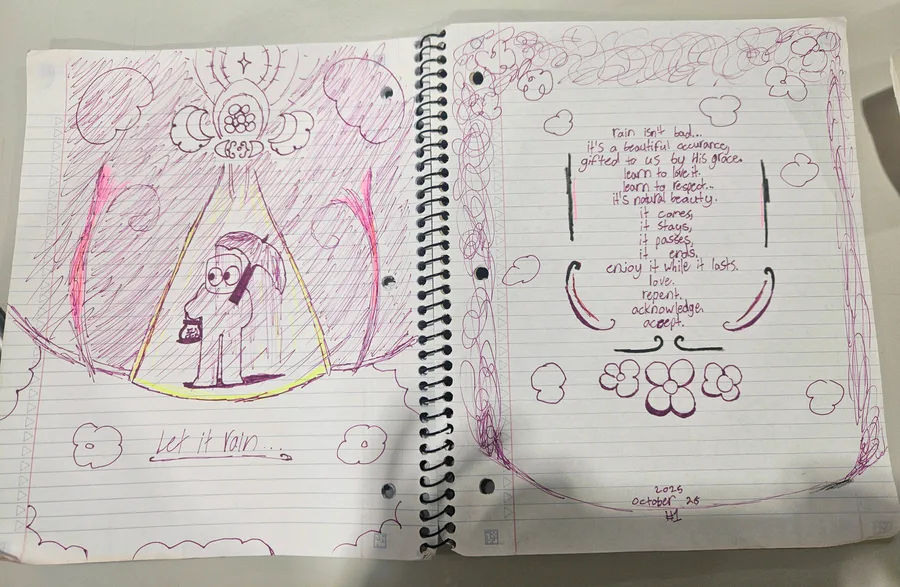 Let it rain...
rain isn't bad...
it's a beautiful accurance,
gifted to us by His grace.
learn to love it.
learn to respect...
it's natural beauty.
it comes,
it stays,
it passes,
it ends.
enjoy it while it lasts.
love.
repent.
acknowledge.
accept.
2025
October 25